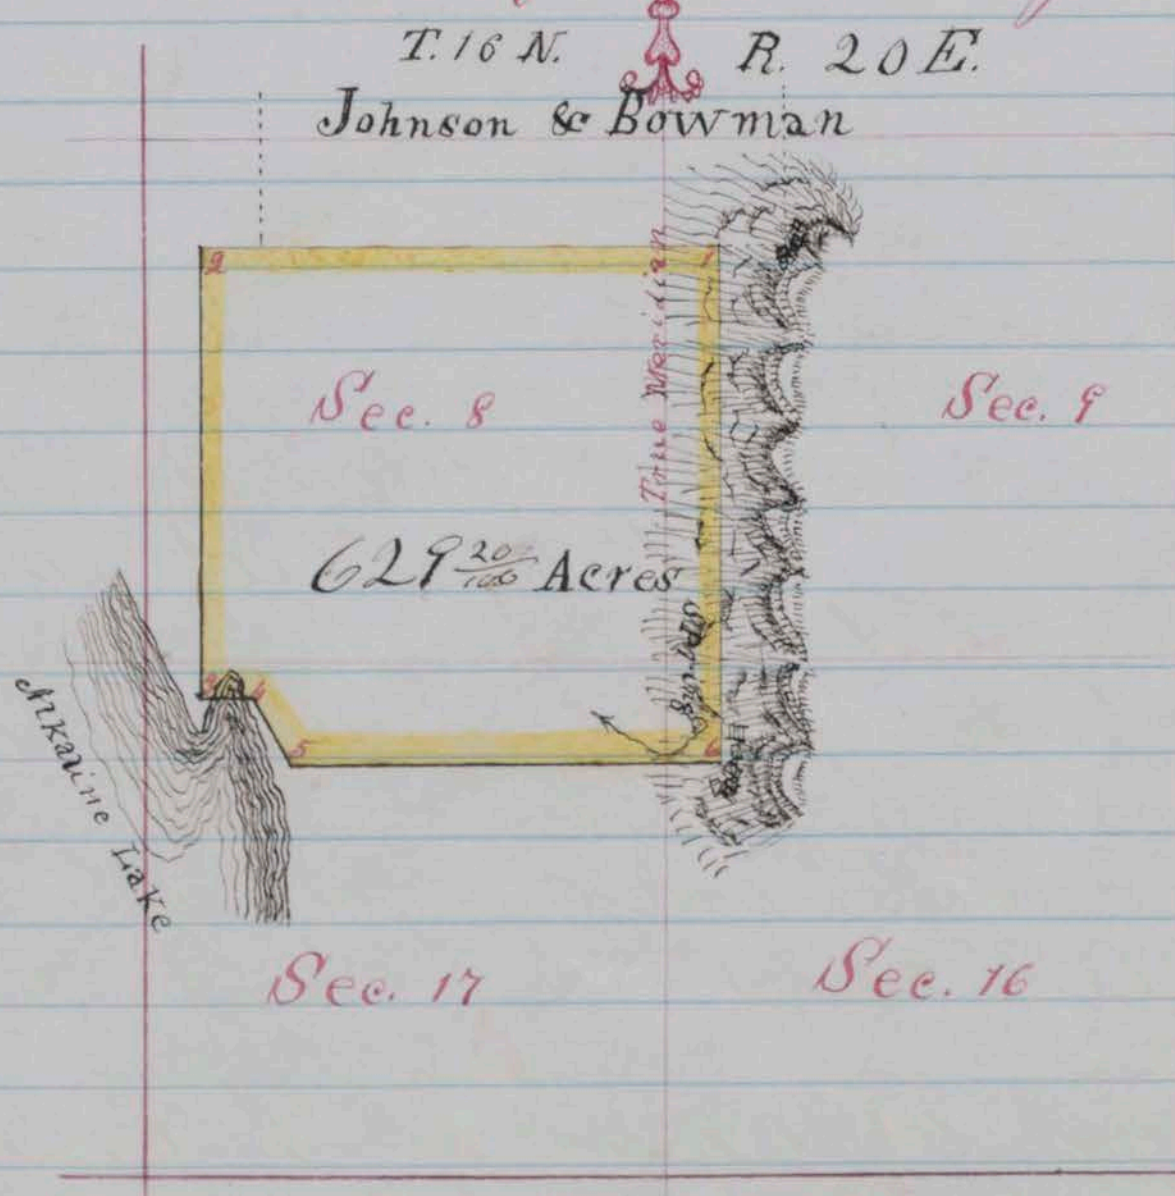 T. 16 N. R. 20 E.
Johnson & Bowman
2 1
True Meridian
Sec. 8 Sec. 9
629 20/100 Acres
Spring
3 4
5 6
Alkaline Lake
Sec. 17 Sec. 16